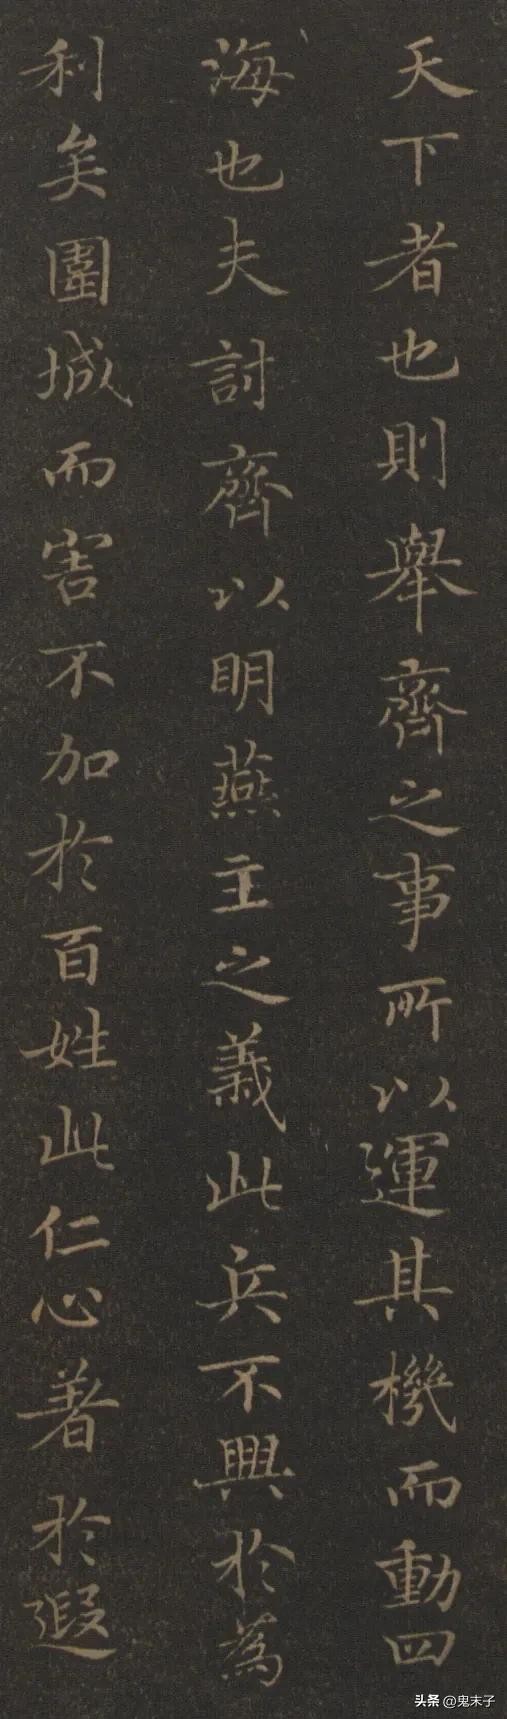 天下者也則舉齊之事所以運其機而動四
海也夫討齊以明燕主之義此兵不興於為
利矣圍城而害不加於百姓此仁心著於遐
头条 @鬼末子